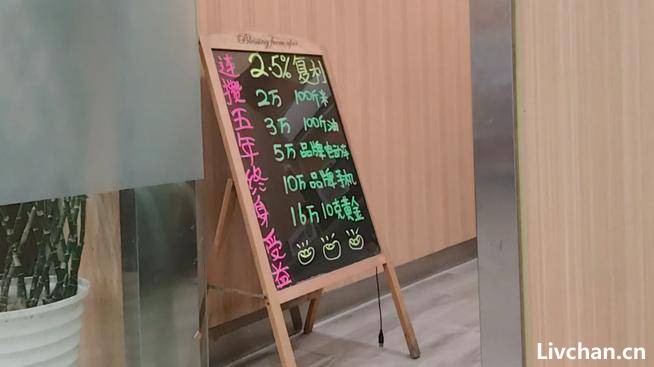 Blessing from after
连攒五年终身受益
2.5%复利
2万 100斤米
3万 100斤油
5万品牌电动车
10万品牌手机
16万10克黄金
Livchan.cn